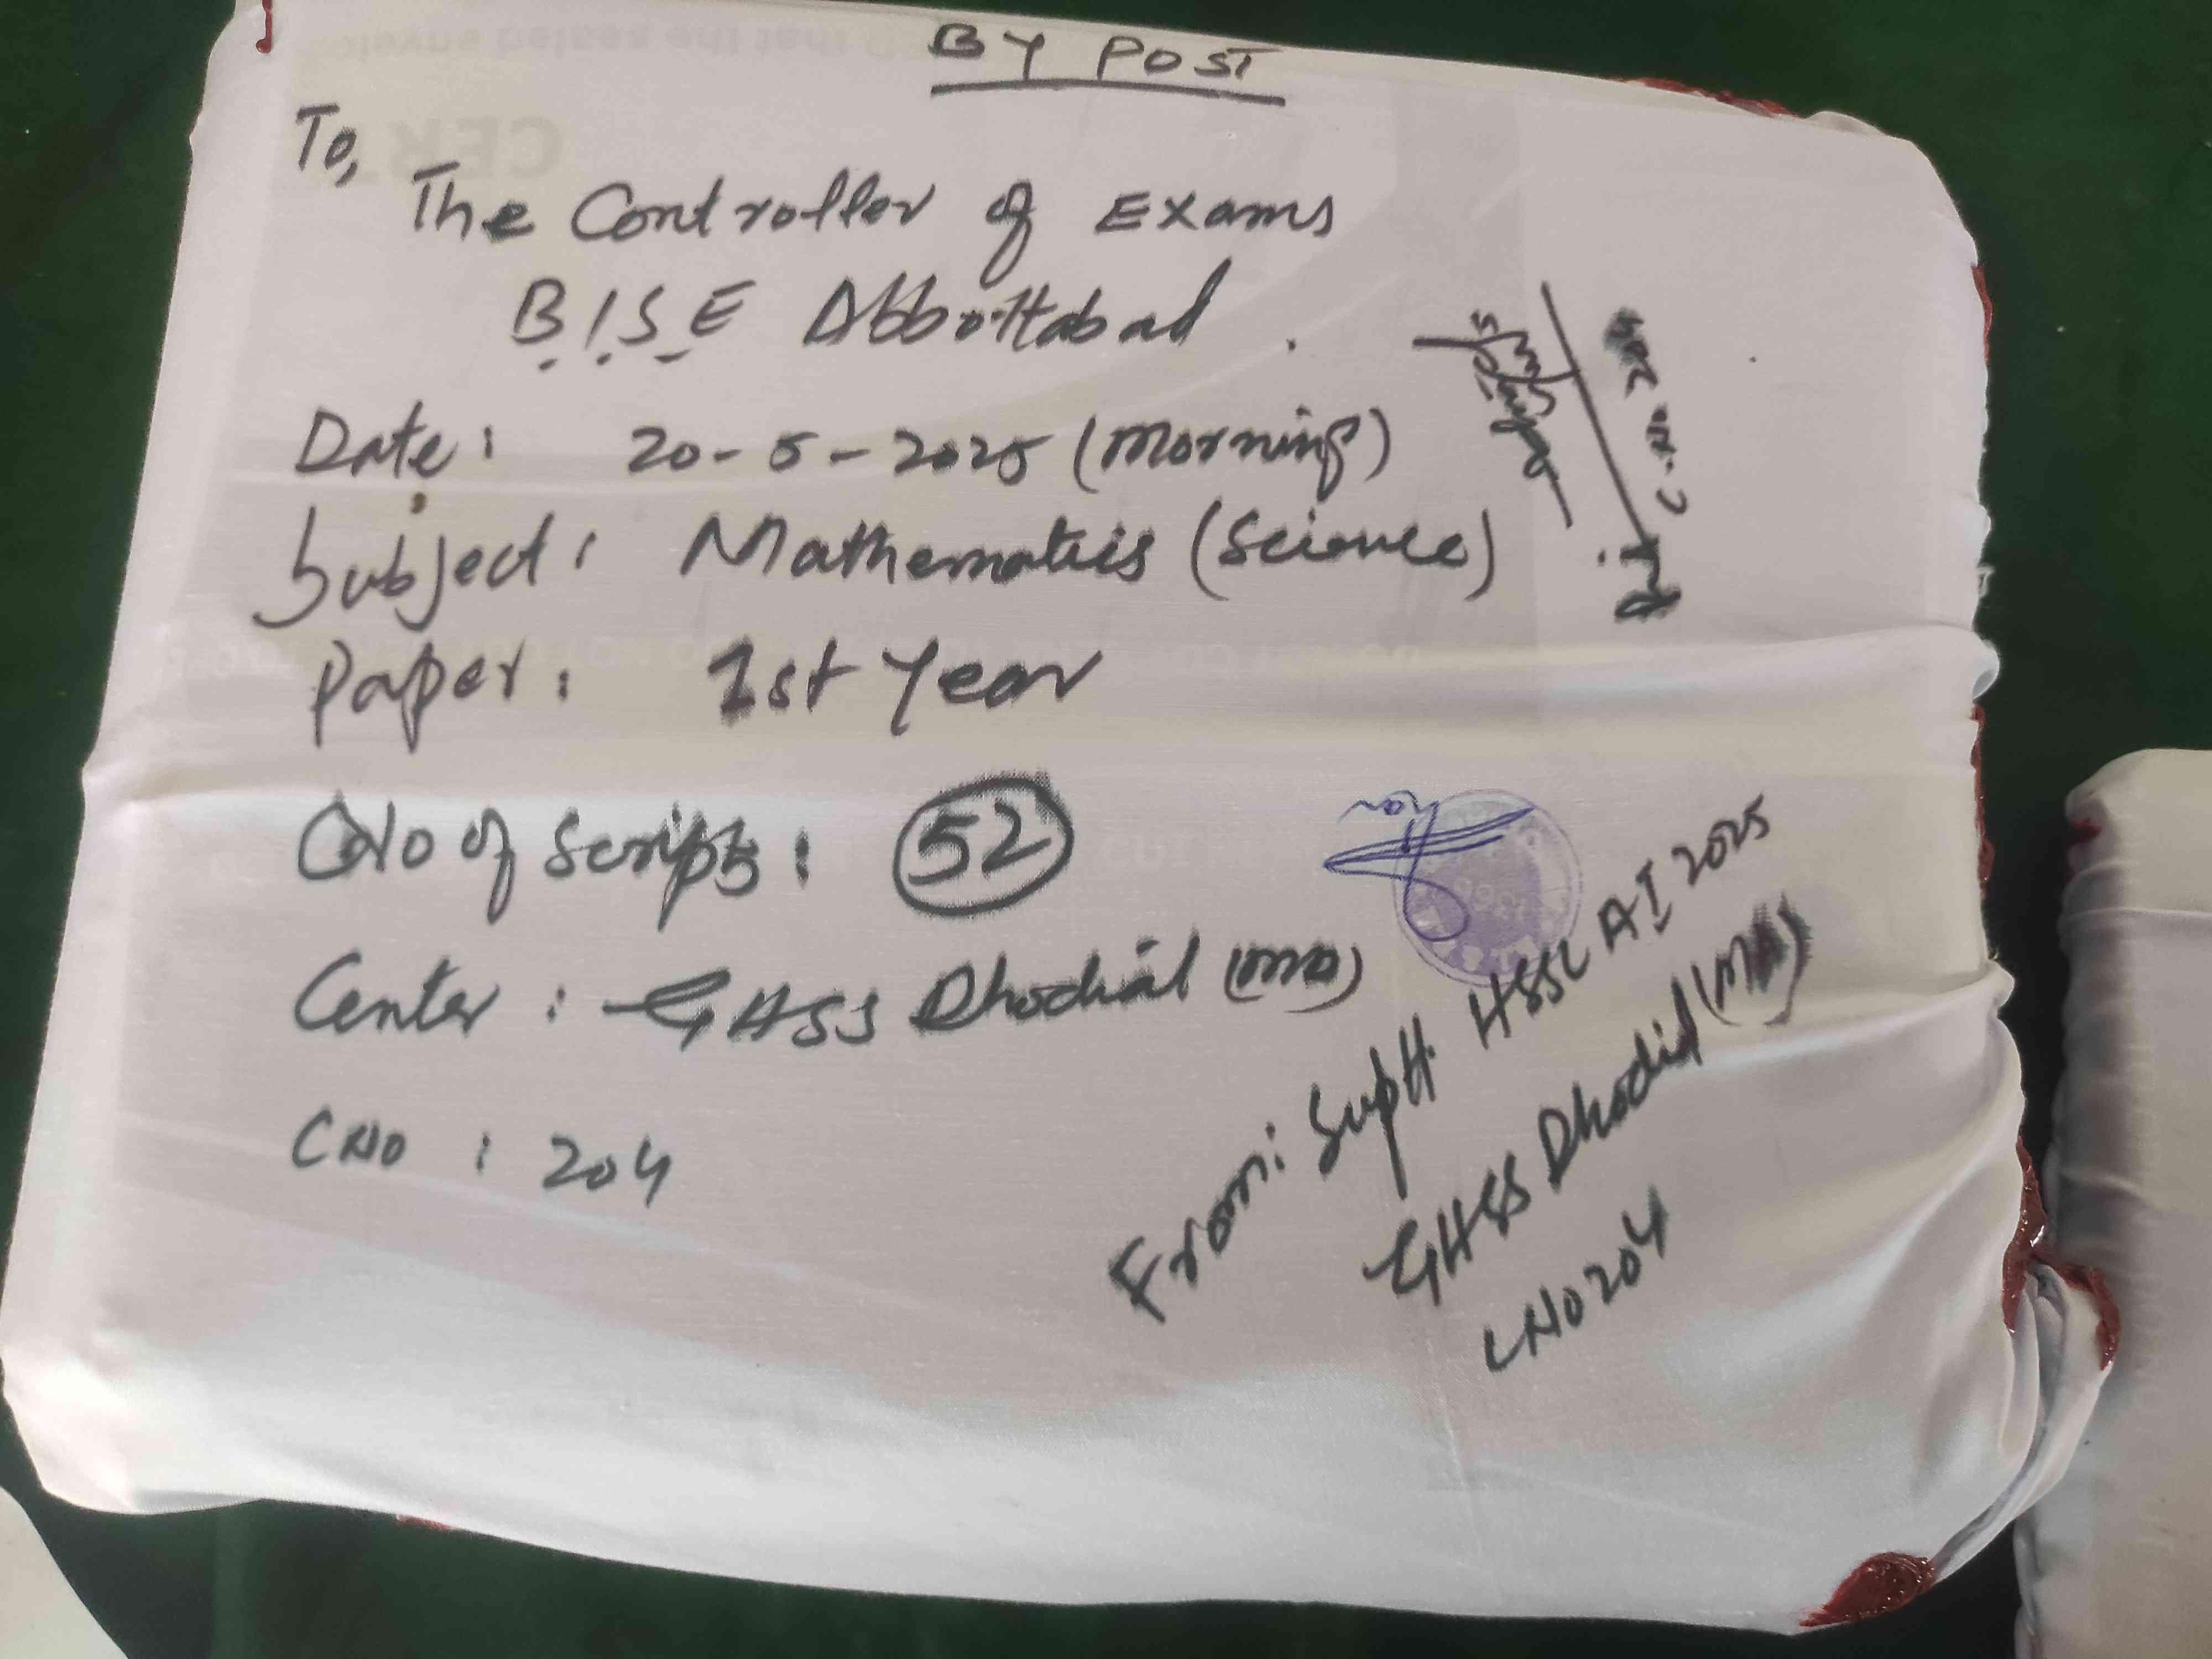 BY POST
To,
The Controller of Exams
B.I.S.E Abbottabad.
Date: 20-5-2025 (Morning)
Subject: Mathematics (Science)
Paper: 1st Year
No of Scripts: 52
Center: GHSS Dhodial (MA)
CNO: 204
From: Supdt. HSSC AI 2025
GHSS Dhodial (MA)
CNO 204